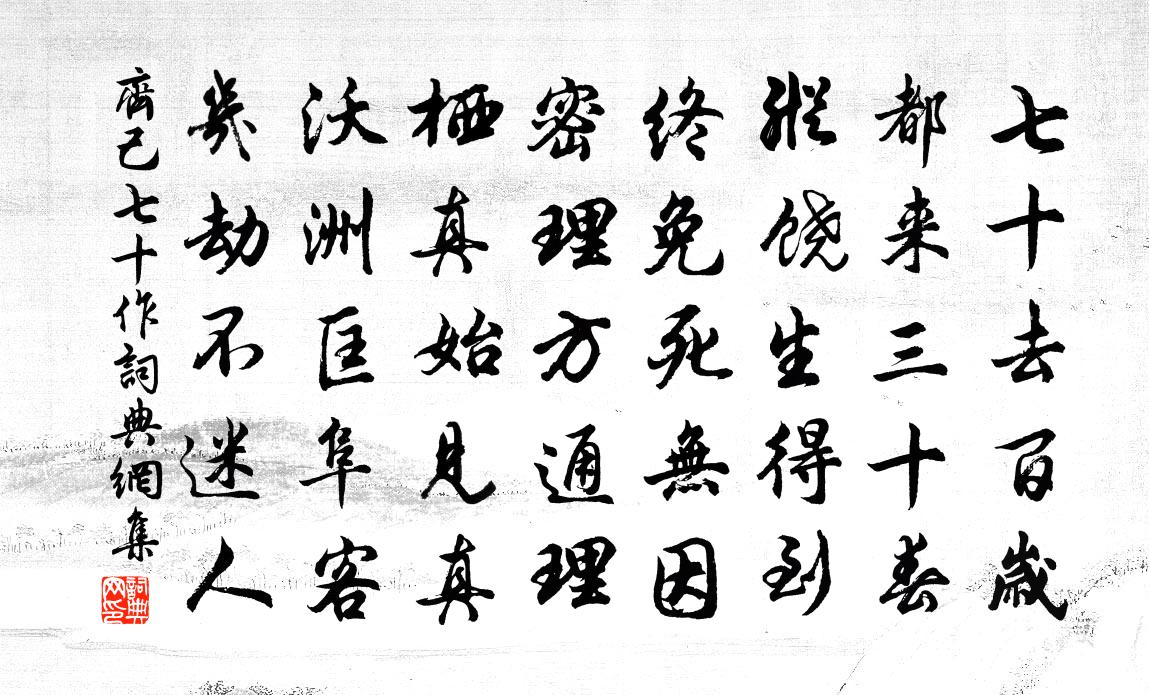 七十去百歲
都来三十春
縱饶生得到
終免死無因
密理方通理
栖真始見真
沃洲匡阜客
幾劫不迷人
齊己七十作詞典網集
詞典网印